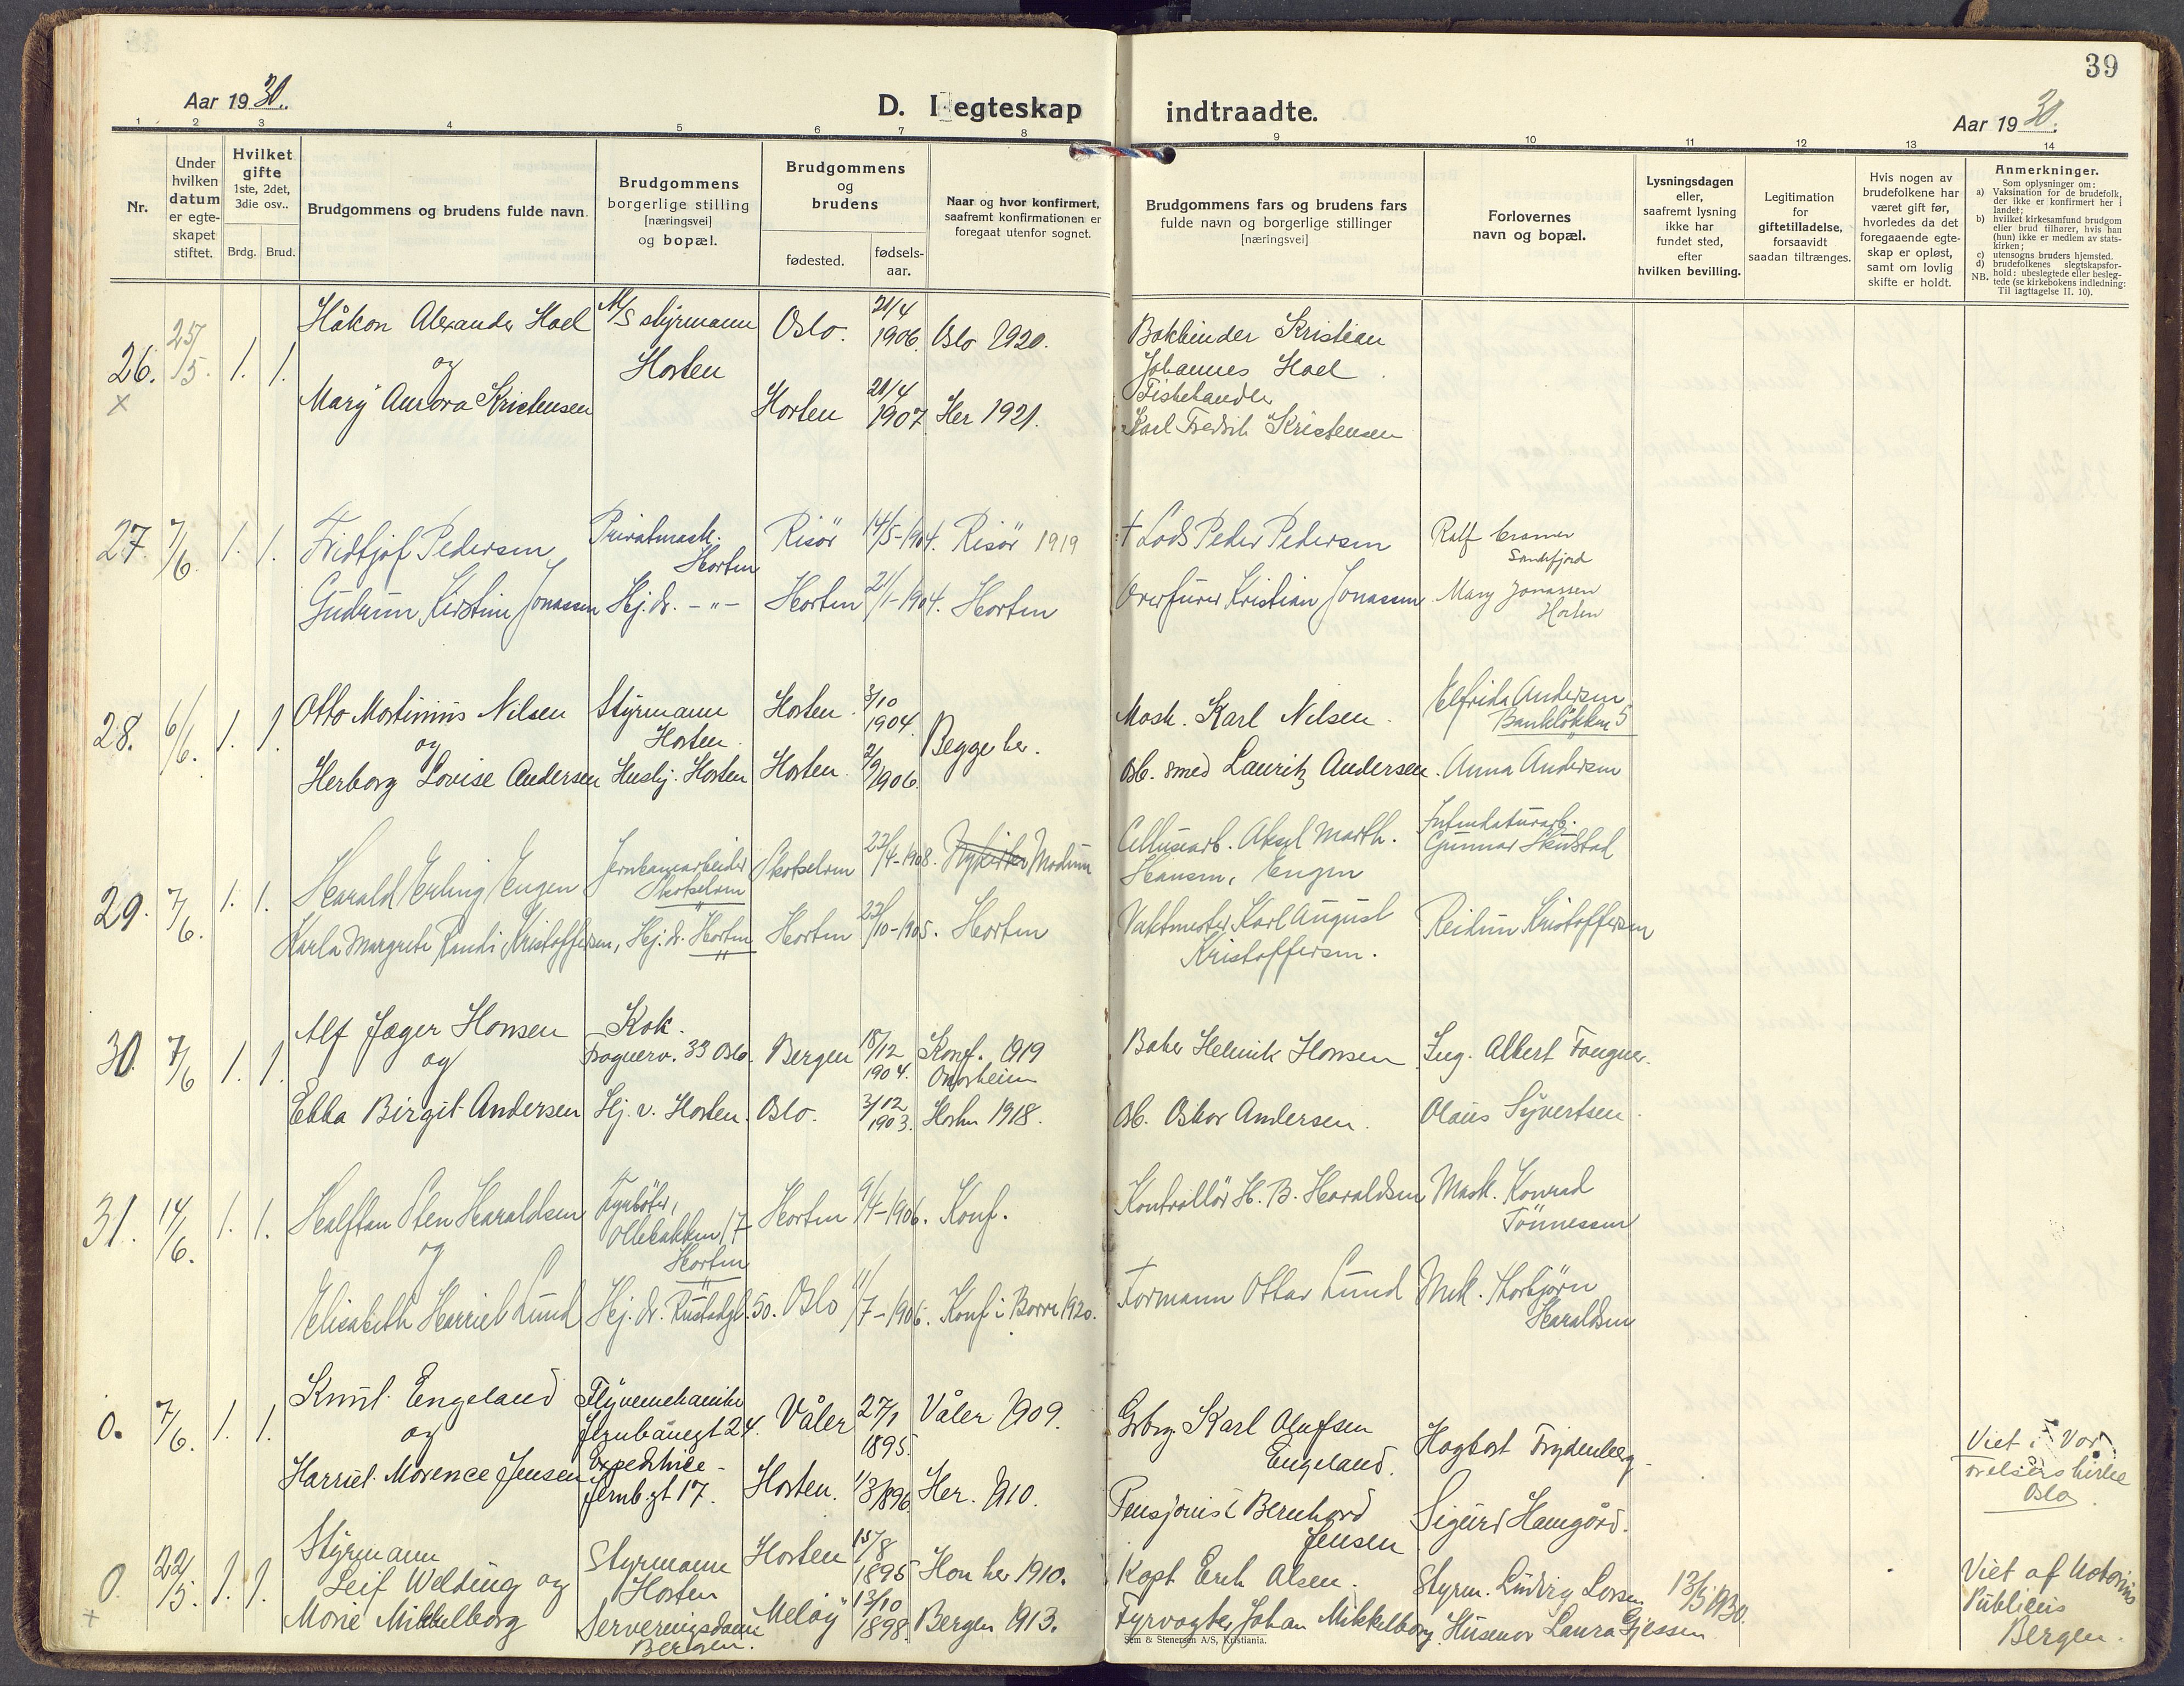 39
Aar 1930.
D. I egteskap indtraadte.
Aar 1930.
1 2 3 4 5 6 7 8 9 10 11 12 13 14
Nr.
Under hvilken datum er egte-skapet stiftet.
Hvilket gifte 1ste, 2det, 3die osv..
Brdg. Brud.
Brudgommens og brudens fulde navn.
Brudgommens borgerlige stilling [næringsvei] og bopæl.
Brudgommens og brudens
fødested.
fødsels-aar.
Naar og hvor konfirmert, saafremt konfirmationen er foregaat utenfor sognet.
Brudgommens fars og brudens fars fulde navn og borgerlige stillinger [næringsvei]
Forlovernes navn og bopæl.
Lysningsdagen eller, saafremt lysning ikke har fundet sted, efter hvilken bevilling.
Legitimation for giftetilladelse, forsaavidt saadan tiltrænges.
Hvis nogen av brudefolkene har været gift før, hvorledes da det foregaaende egte-skap er opløst, samt om lovlig skifte er holdt.
Anmerkninger.
Som oplysninger om:
a) Vaksination for de brudefolk, der ikke er konfirmert her i landet;
b) hvilket kirkesamfund brudgom eller brud tilhører, hvis han (hun) ikke er medlem av stats-kirken;
c) utensogns bruders hjemsted.
d) brudefolkenes slegtskapsfor-hold: ubeslegtede eller besleg-tede (se kirkebokens indledning: Til iagttagelse II. 10).
NB.
26. 25/5. 1. 1. Håkon Alexander Hoel M/S styrmann Oslo. 21/4 1906. Oslo 1920. Bokbinder Kristian
og Horten Johannes Hoel
x Mary Aurora Kristensen Horten 21/4 1907 Her 1921. Fiskehandler
Karl Fredrik Kristensen
27. 7/6. 1. 1. Fridtjof Pedersen Privatmask. Horten Risör 14/5-1904. Risör 1919 † Lods Peder Pedersen Ralf Cramer Sandefjord
Gudrun Kirstine Jonassen Hj. dr. -"- Horten 21/1-1904. Horten Overfurer Kristian Jonassen Mary Jonassen Horten
28. 6/6. 1. 1. Otto Martinius Nilsen Styrmann Horten. Horten. 3/10 1904. Mask. Karl Nilsen. Elfrida Andersen Bankløkken 5
og Begge her.
Herborg Lovise Andersen Husbj. Horten Horten 2/9 1906. Arb. smed Lauritz Andersen. Anna Andersen
29. 7/6. 1. 1. Harald Erling Engen Jernbanearbeider Skotselven Skotselven 23/4-1908. Modum Cellulosearb. Aksel Marth. Hansen, Engen Intendaturarb. Gunnar Skustad
Karla Margrete Randi Kristoffersen, Hj. dr. Horten Horten 22/10-1905. Horten Vaktmester Karl August Kristoffersen. Reidun Kristoffersen
30. 7/6 1. 1. Alf Jæger Hansen Kok. Frognerv. 33 Oslo. Bergen 18/12 1904. Konf. 1919 Baker Henrik Hansen Ing. Albert Fougner.
og
Ebba Birgit Andersen Hj. v. Horten. Oslo. 3/12 1903. Horten 1918. Arb. Oskar Andersen. Olaus Syvertsen.
31. 14/6. 1. 1. Halfdan Sten Haraldsen Fyrbøter, Ollebakken 17 Horten Horten 9/4-1906. Konf. Kontrollör H. B. Haraldsen Mask. Konrad Tönnessen
og
Elisabeth Harriet Lund Hj. dr. Rustadgt. 50. Oslo 11/7-1906. Konf. i Borre 1920. Formann Ottar Lund Mek. Thorbjørn Haraldsen
0. 7/6. 1. 1. Knut Engeland Flyvemekaniker Jernbanegt 24. Våler 27/1 1895. Våler 1909. Grbrg. Karl Olufsen Engeland. Hagbart Frydenberg. Viet i Vor Frelsers kirke Oslo
og
Harriet Morence Jensen Expeditrice - Jernb.gt 17. Horten. 1/3 1896 Her. 1910. Pensjonist Bernhard Jensen Sigurd Hamgård.
0. 22/5. 1. 1. Styrmann Leif Welding og Styrmann Horten Horten 15/8 1895 Han her 1910. Kapt. Erik Olsen. Styrm. Ludvig Larsen 13/5 1930. Viet af Notarius Publicus Bergen.
x Marie Mikkelborg Serveringsdame Bergen. Meløy 13/10 1898. Bergen 1913. Fyrvogter Johan Mikkelborg. Husmor Laura Gjessen
Sem & Stenersen A/S, Kristiania.